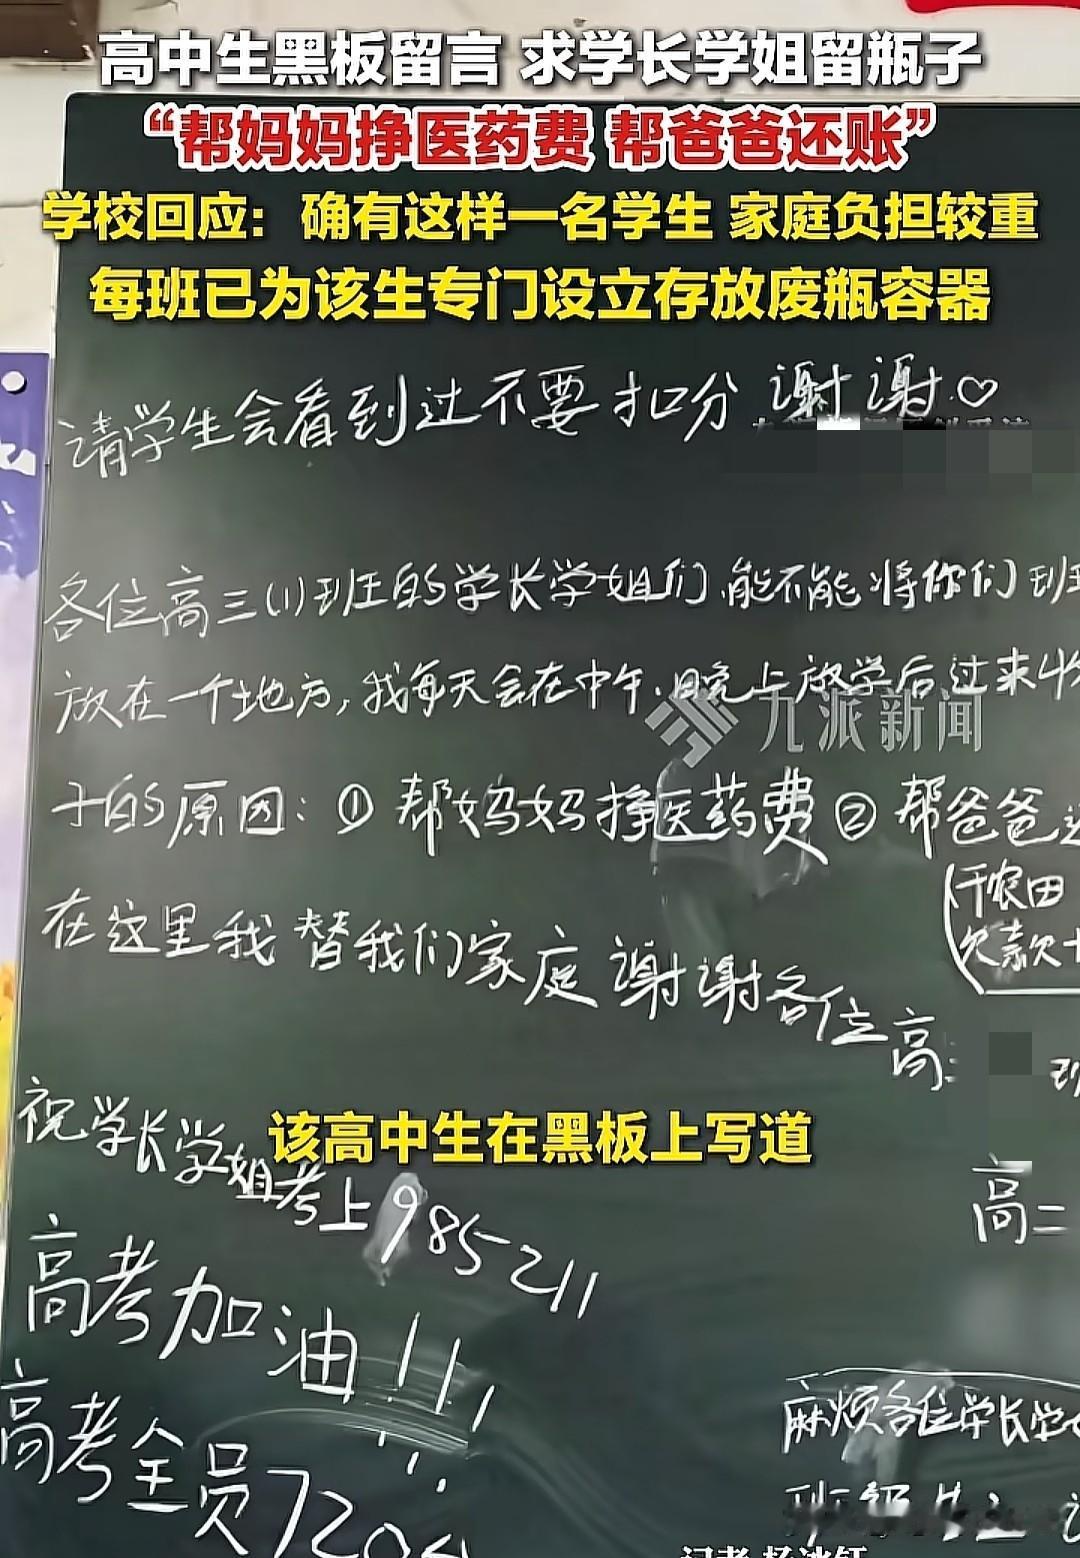 高中生黑板留言 求学长学姐留瓶子
“帮妈妈挣医药费 帮爸爸还账”
学校回应：确有这样一名学生 家庭负担较重
每班已为该生专门设立存放废瓶容器
请学生会看到过不要扣分 谢谢♡
各位高三(1)班的学长学姐们,能不能将你们班
放在一个地方,我每天会在中午.晚上放学后过来
九派新闻
子的原因：① 帮妈妈挣医药费 ② 帮爸爸
(干农田
欠款
在这里我替我们家庭谢谢各位高三
班
祝学长学姐考上985 211
该高中生在黑板上写道
高二
高考加油!!!
高考全员720
麻烦各位学长学
班级
记者 杨冰钰